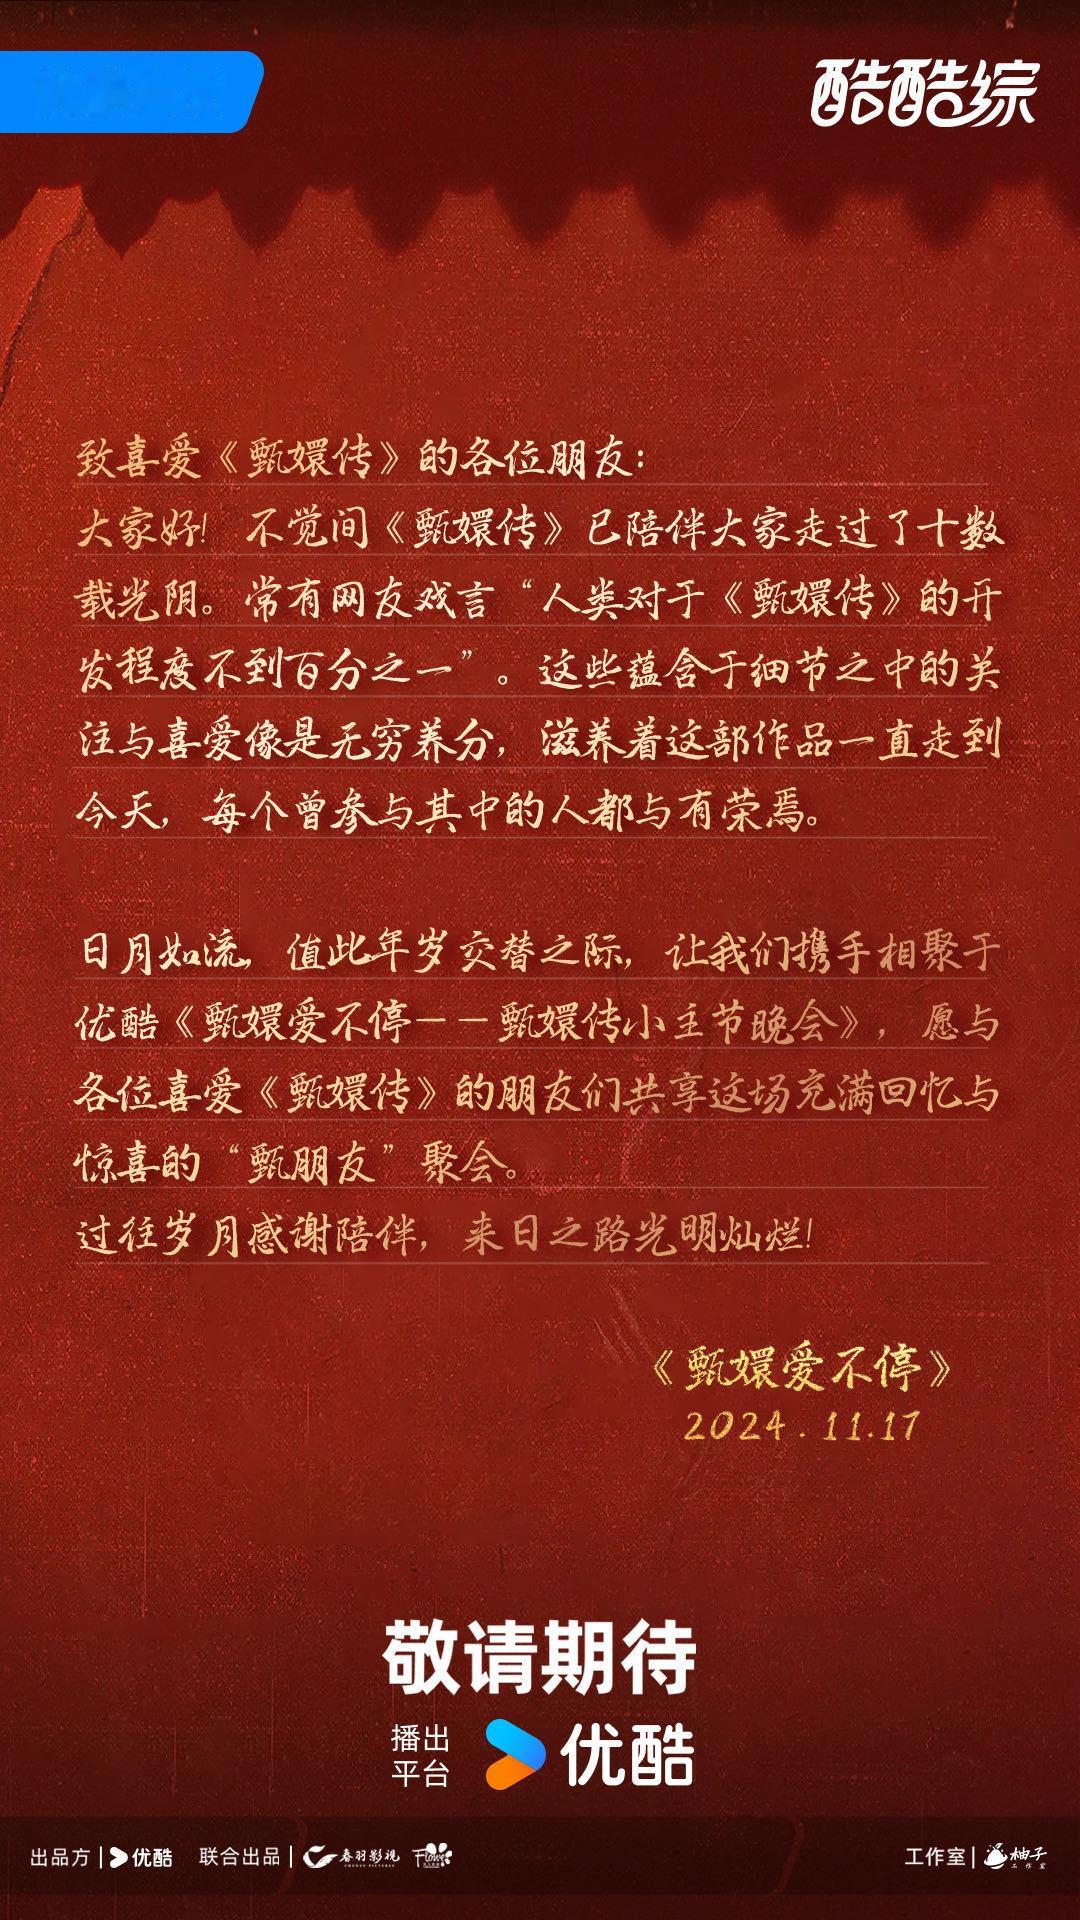 酷酷综
致喜爱《甄嬛传》的各位朋友：
大家好！不觉间《甄嬛传》已陪伴大家走过了十数
载光阴。常有网友戏言“人类对于《甄嬛传》的开
发程度不到百分之一”。这些蕴含于细节之中的关
注与喜爱像是无穷养分，滋养着这部作品一直走到
今天，每个曾参与其中的人都与有荣焉。
日月如流，值此年岁交替之际，让我们携手相聚于
优酷《甄嬛爱不停——甄嬛传小主节晚会》，愿与
各位喜爱《甄嬛传》的朋友们共享这场充满回忆与
惊喜的“甄朋友”聚会。
过往岁月感谢陪伴，来日之路光明灿烂！
《甄嬛爱不停》
2024.11.17
敬请期待
播出平台 优酷
出品方 | 优酷 联合出品 | 春羽影视 Flower 工作室 | 柚子工作室